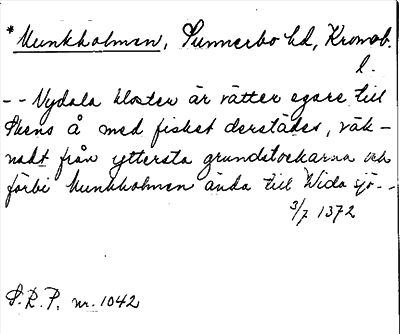 *Munkholmen, Sunnerbo hd, Kronob.
l.
-- Nydala kloster är rätter egare till
Skens å med fisket derstädes, räk-
nadt från yttersta grundstockarna och
förbi Munkholmen ända till Wida sjö--
3/7 1372
S.R.P. nr. 1042